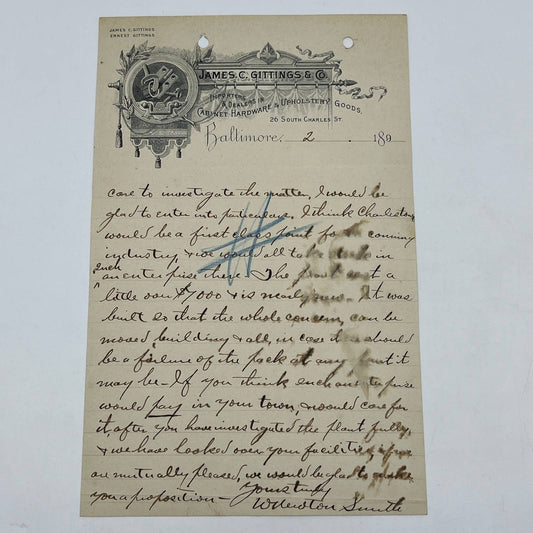 JAMES C. GITTINGS.
ERNEST GITTINGS.
JAMES. C. GITTINGS & CO.
IMPORTERS
& DEALERS IN
CABINET HARDWARE & UPHOLSTERY GOODS,
26 SOUTH CHARLES ST.
Baltimore, 2 189
care to investigate the matter, I would be
glad to enter into particulars. I think Charleston
would be a first class point for the canning
industry, & we would all take stock in
such
an enterprise there The plant cost a
little over $7000 & is nearly new. It was
built so that the whole concern, can be
moved, building & all, in case there should
be a failure of the pack at any point it
may be - If you think such an enterprise
would pay in your town, & would care for
it, after you have investigated the plant fully,
& we have looked over your facilities, if we
are mutually pleased, we would be glad to make
you a proposition -
Yours truly
W Newton Smith